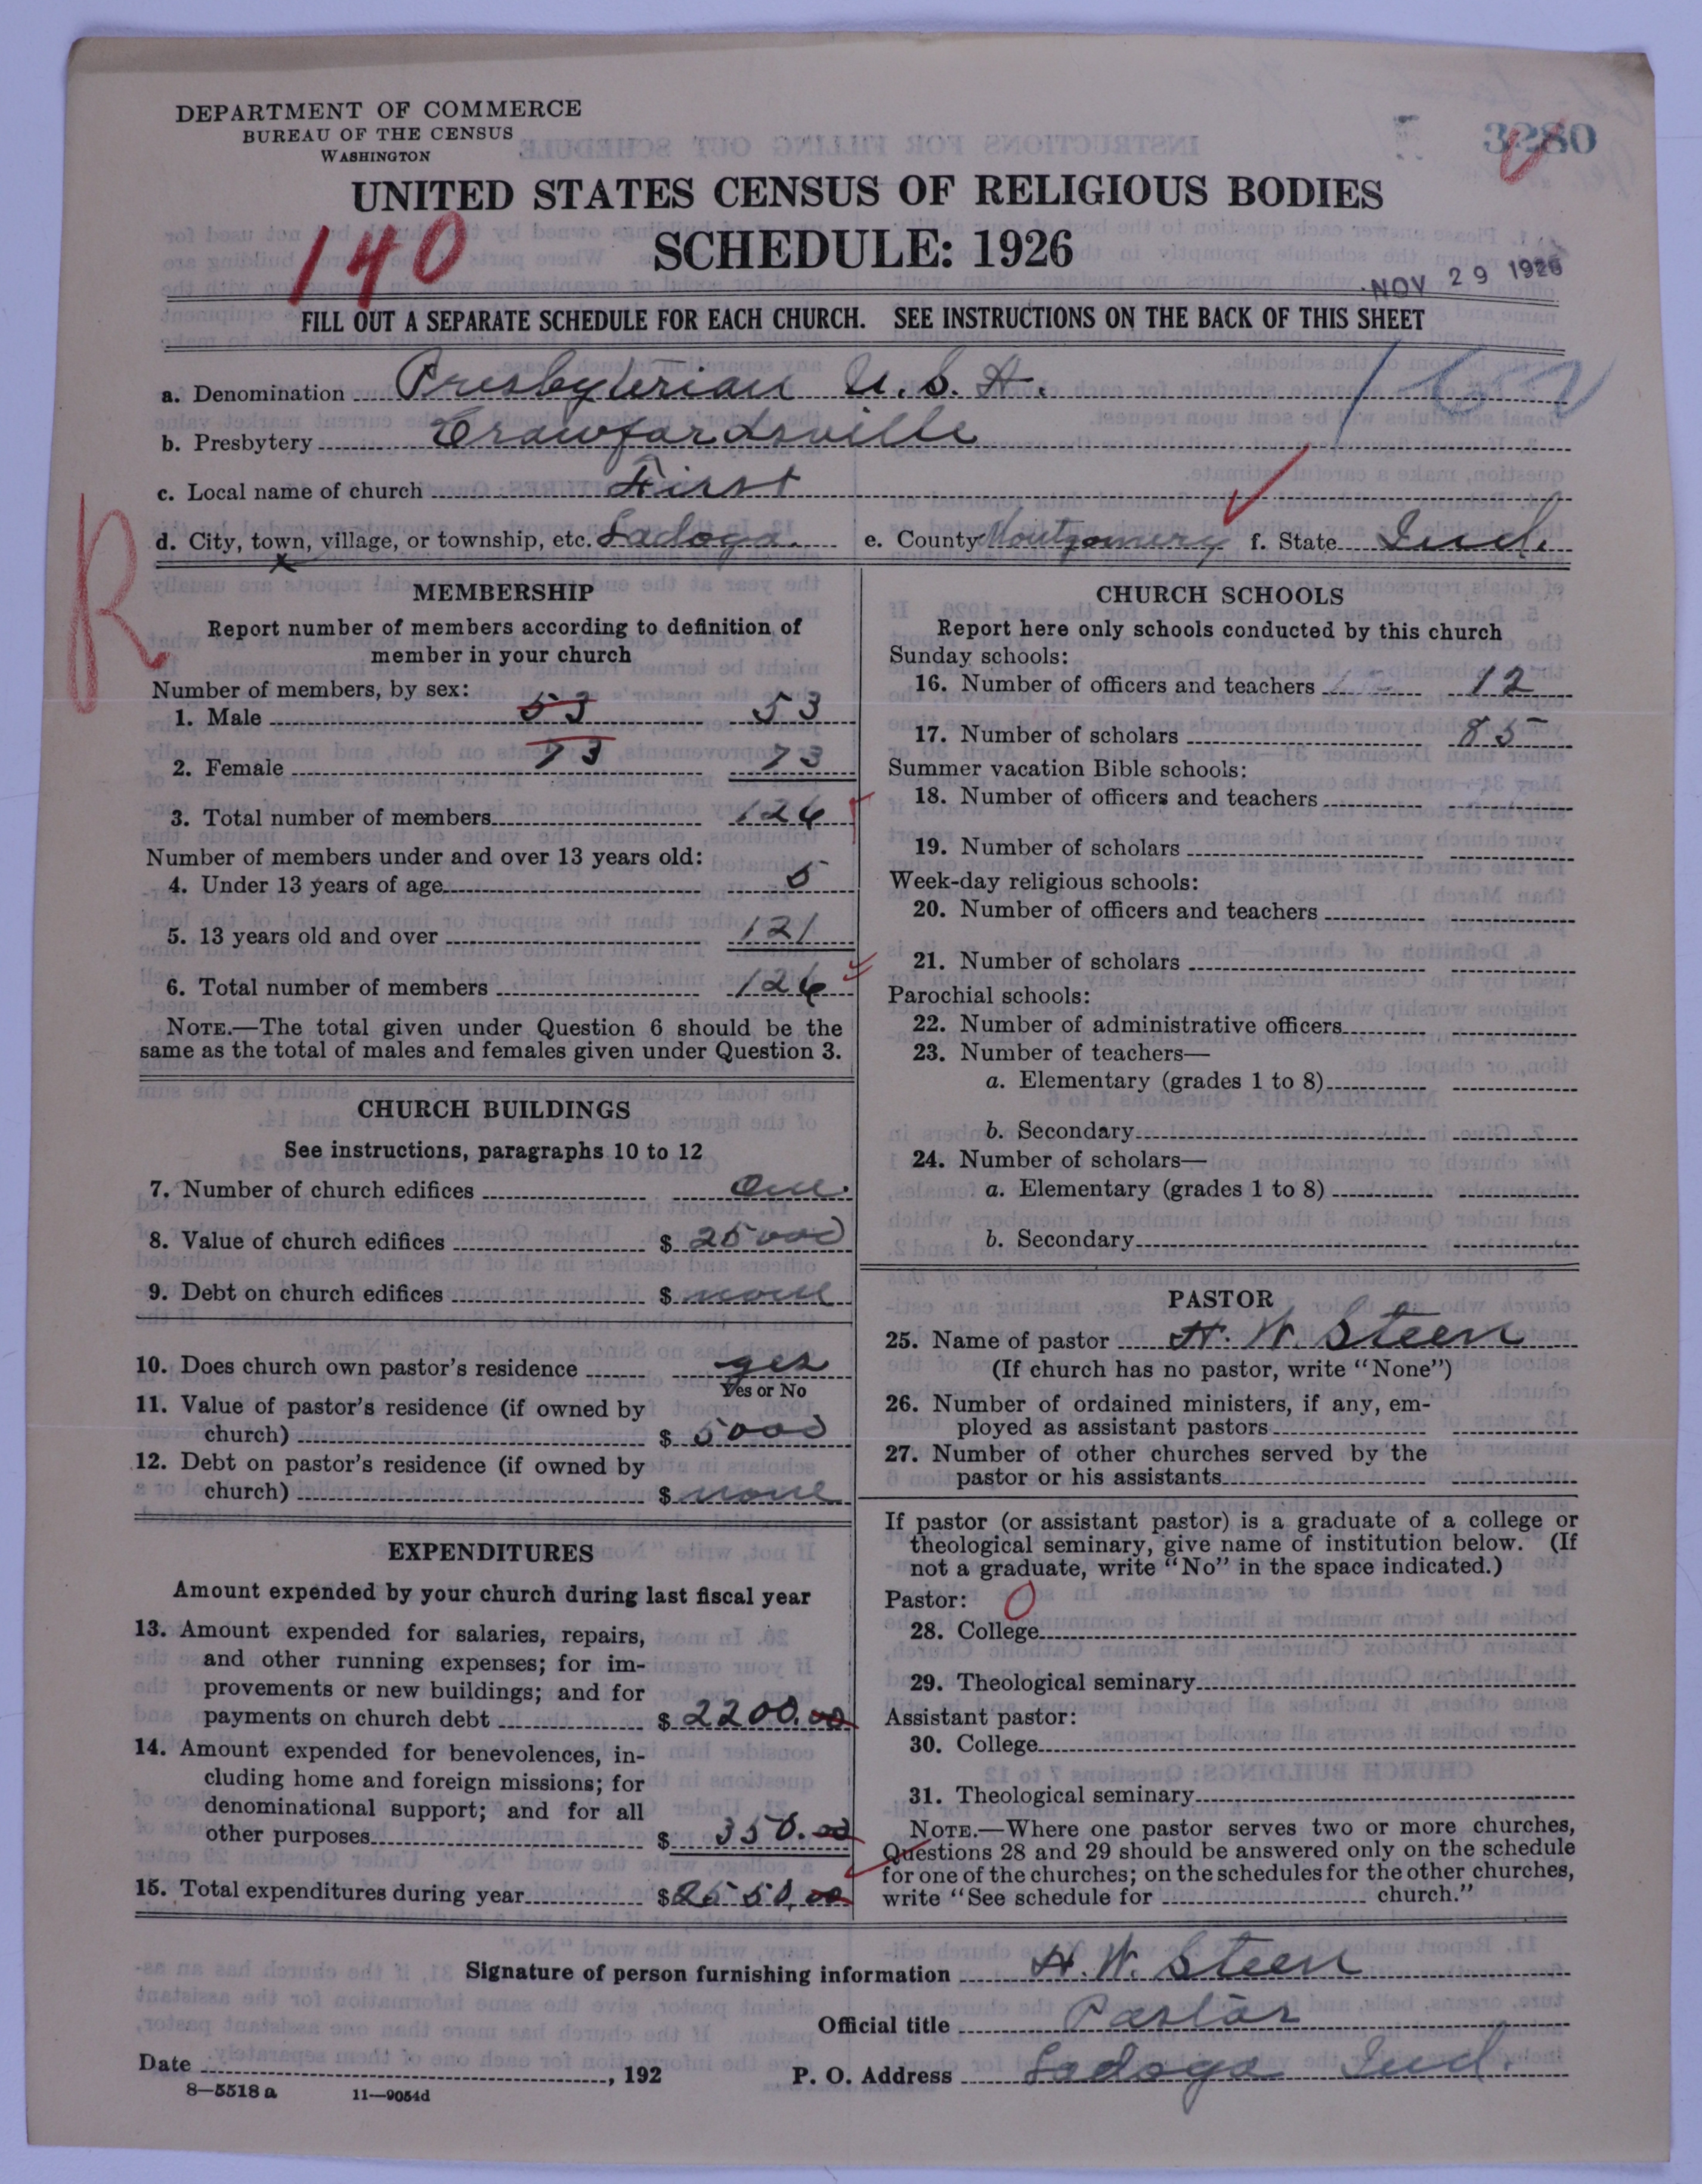 DEPARTMENT OF COMMERCE
BUREAU OF THE CENSUS
WASHINGTON
3280
UNITED STATES CENSUS OF RELIGIOUS BODIES
140
SCHEDULE: 1926
NOV 29 1926
FILL OUT A SEPARATE SCHEDULE FOR EACH CHURCH. SEE INSTRUCTIONS ON THE BACK OF THIS SHEET
a. Denomination Presbyterian U.S.A.
b. Presbytery Crawfordsville
c. Local name of church First
d. City, town, village, or township, etc. Ladoga. e. County Montgomery f. State Ind.
R
MEMBERSHIP
Report number of members according to definition of
member in your church
Number of members, by sex:
1. Male 53 53
2. Female 73 73
3. Total number of members 126
Number of members under and over 13 years old:
4. Under 13 years of age 5
5. 13 years old and over 121
6. Total number of members 126
NOTE.—The total given under Question 6 should be the
same as the total of males and females given under Question 3.
CHURCH BUILDINGS
See instructions, paragraphs 10 to 12
7. Number of church edifices One.
8. Value of church edifices $ 25000
9. Debt on church edifices $ none
10. Does church own pastor's residence yes
Yes or No
11. Value of pastor's residence (if owned by
church) $ 5000
12. Debt on pastor's residence (if owned by
church) $ none
EXPENDITURES
Amount expended by your church during last fiscal year
13. Amount expended for salaries, repairs,
and other running expenses; for im-
provements or new buildings; and for
payments on church debt $ 2200.00
14. Amount expended for benevolences, in-
cluding home and foreign missions; for
denominational support; and for all
other purposes $ 350.00
15. Total expenditures during year $ 2550.00
CHURCH SCHOOLS
Report here only schools conducted by this church
Sunday schools:
16. Number of officers and teachers 12 12
17. Number of scholars 85
Summer vacation Bible schools:
18. Number of officers and teachers
19. Number of scholars
Week-day religious schools:
20. Number of officers and teachers
21. Number of scholars
Parochial schools:
22. Number of administrative officers
23. Number of teachers—
a. Elementary (grades 1 to 8)
b. Secondary
24. Number of scholars—
a. Elementary (grades 1 to 8)
b. Secondary
PASTOR
25. Name of pastor H. W. Steen
(If church has no pastor, write "None")
26. Number of ordained ministers, if any, em-
ployed as assistant pastors
27. Number of other churches served by the
pastor or his assistants
If pastor (or assistant pastor) is a graduate of a college or
theological seminary, give name of institution below. (If
not a graduate, write "No" in the space indicated.)
Pastor: O
28. College
29. Theological seminary
Assistant pastor:
30. College
31. Theological seminary
NOTE.—Where one pastor serves two or more churches,
Questions 28 and 29 should be answered only on the schedule
for one of the churches; on the schedules for the other churches,
write "See schedule for church."
Signature of person furnishing information H. W. Steen
Official title Pastor
Date , 192 P. O. Address Ladoga Ind.
8—5518 a 11—9054d